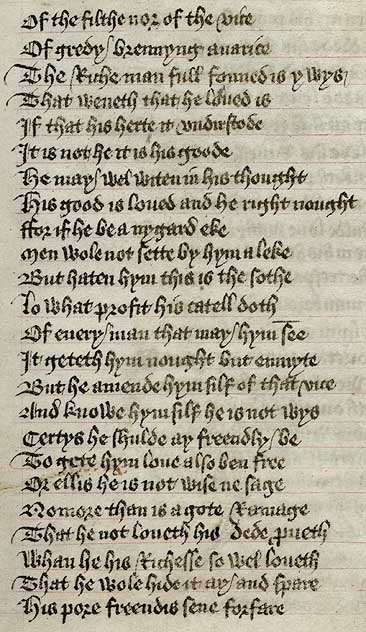 Of the filthe nor of the vice
Of gredy brennyng auarice
The Riche man full fonned is ywys
That weneth that he loued is
If that his herte it vndirstode
It is not he it is his goode
He may wel witen in his thought
His good is loued and he right nought
ffor if he be a nygard eke
Men wole not sette by hym a leke
But haten hym this is the sothe
lo what profit his catell doth
Of euery man that may hym see
It geteth hym nought but enmyte
But he amende hym silf of that vice
And knowe hym silf he is not wys
Certys he shulde ay freendly be
To gete hym loue also ben free
Or ellis he is not wise ne sage
Nomore than is a gote Ramage
That he not loueth his dede prueth
Whan he his Richesse so wel loueth
That he wole hide it ay and spare
His pore freendis sene forfare